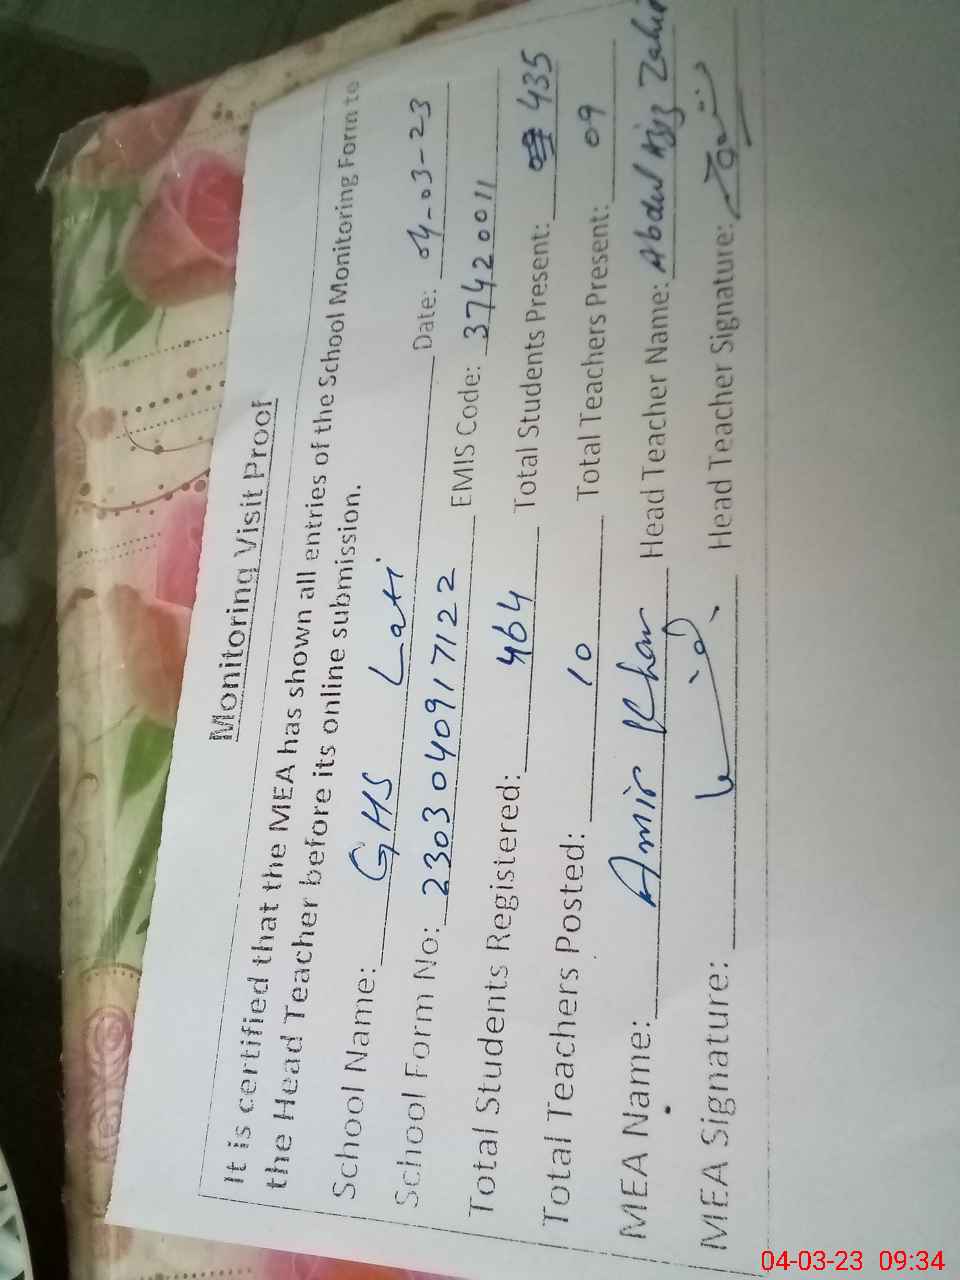 Monitoring Visit Proof
It is certified that the MEA has shown all entries of the School Monitoring Form to
the Head Teacher before its online submission.
School Name: GHS Lati Date: 04-03-23
School Form No: 2303040917122 EMIS Code: 37420011
Total Students Registered: 464 Total Students Present: 435
Total Teachers Posted: 10 Total Teachers Present: 09
MEA Name: Amir Khan Head Teacher Name: Abdul Aziz Zahir
MEA Signature: Head Teacher Signature:
04-03-23 09:34